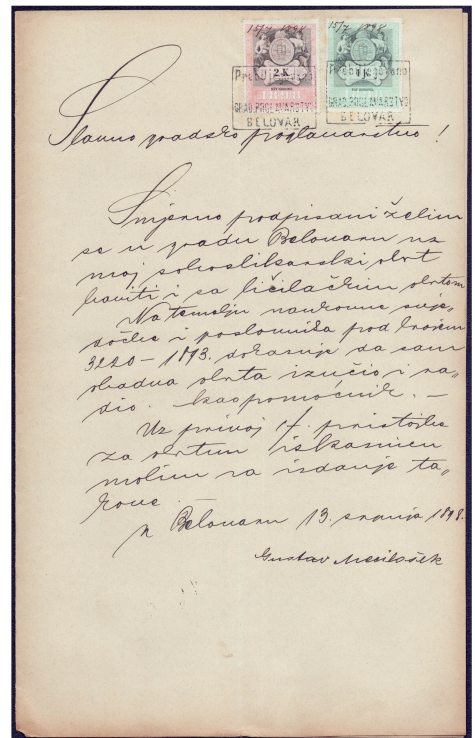 15/7 1898 15/7 1898
2 K 1 K
1898
GRAD. POGLAVARSTVO GRAD. POGLAVARSTVO
BELOVAR BELOVAR
Slavno gradsko poglavarstvo!
Smjerno podpisani želim
se u gradu Belovaru uz
moj soboslikarski obrt
baviti i sa ličilačkim obrtom
Na temelju naukovne svje-
dočbe i poslovnika pod brojem
3220 – 1893. dokazuje da sam
obadva obrta izučio i ra-
dio kao pomoćnik. –
Uz privoj 1 f. pristojbe
za obrtnu iskaznicu
molim za izdanje ta-
kove.
U Belovaru 13. srpnja 1898.
Gustav